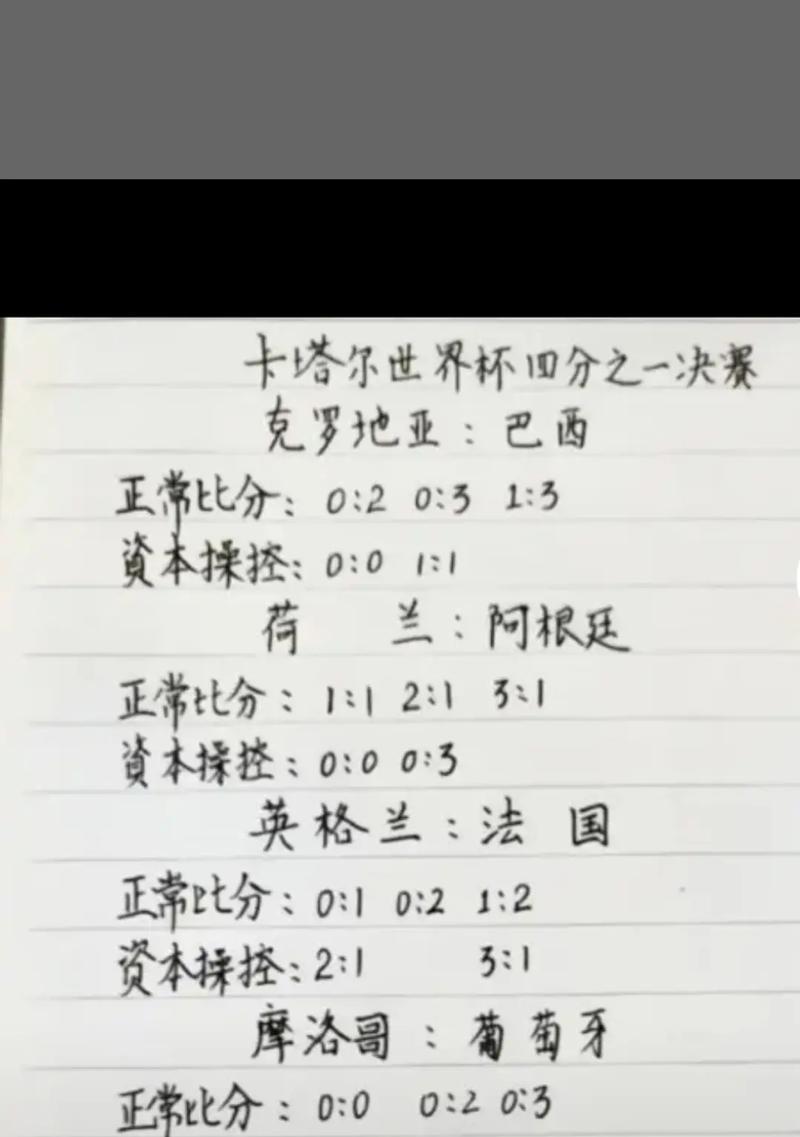 卡塔尔世界杯四分之一决赛
克罗地亚：巴西
正常比分：0:2 0:3 1:3
資本操控：0:0 1:1
荷 兰：阿根廷
正常比分：1:1 2:1 3:1
資本操控：0:0 0:3
英格兰：法国
正常比分：0:1 0:2 1:2
资本操控：2:1 3:1
摩洛哥：葡萄牙
正常比分：0:0 0:2 0:3